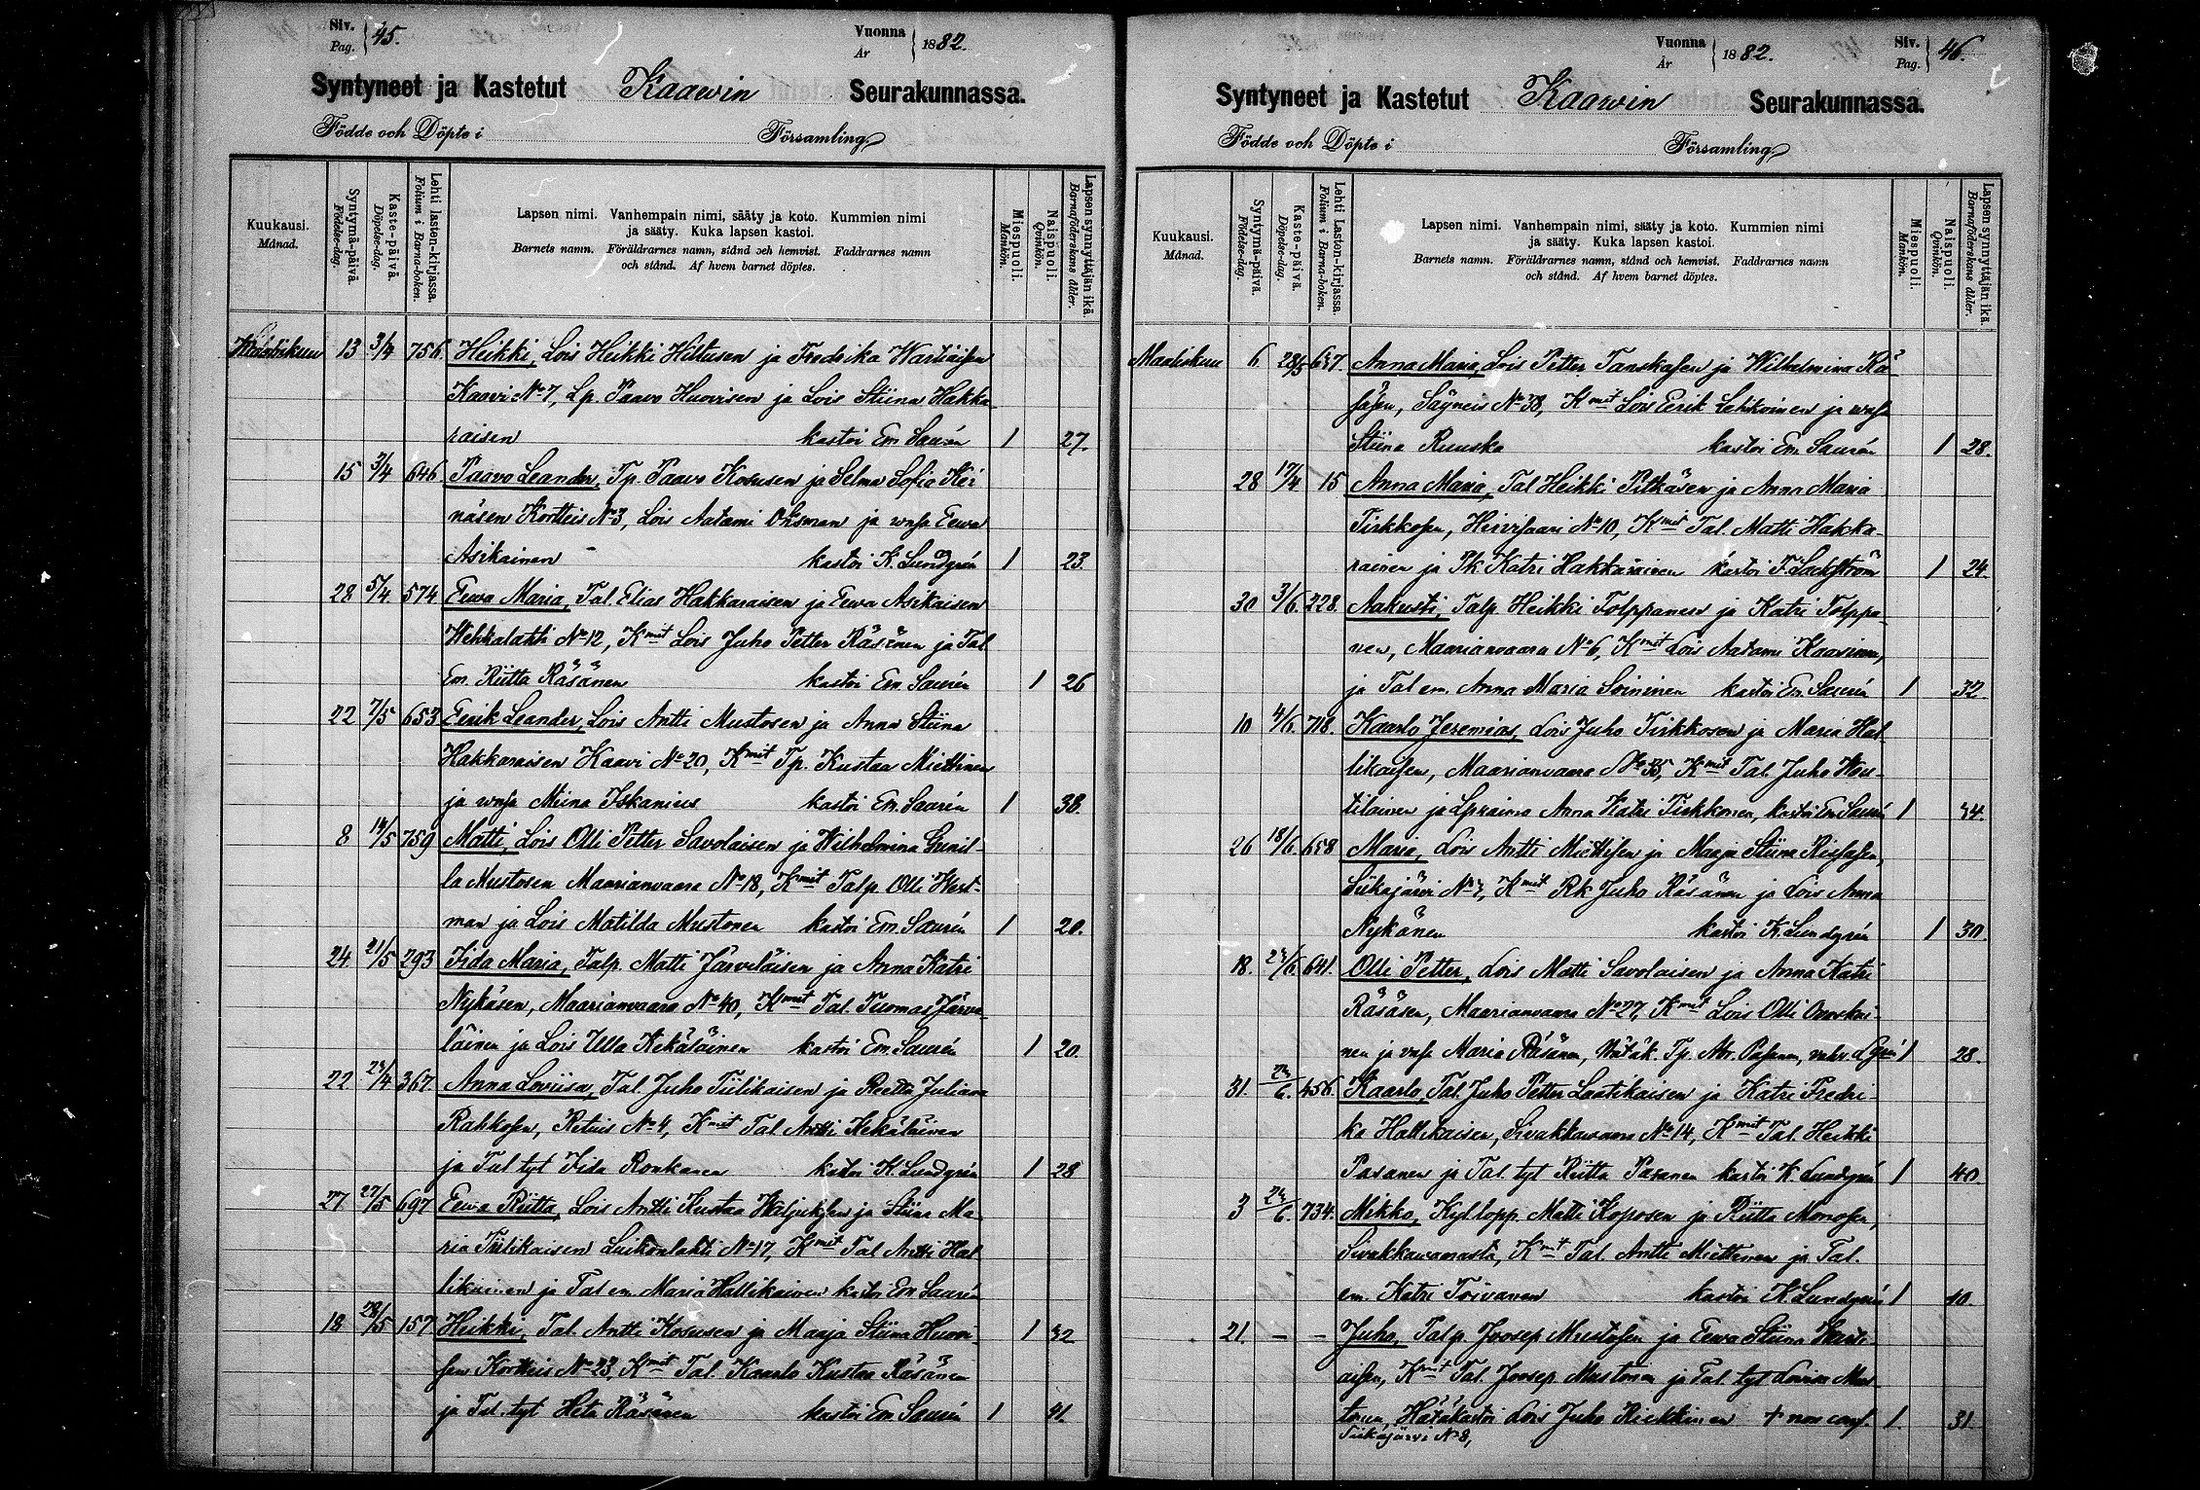 Siv. Pag. } 45.
Vuonna År } 1882.
Syntyneet ja Kastetut Kaawin Seurakunnassa.
Födde och Döpte i Församling
Kuukausi. Månad.
Syntymä-päivä. Födelse-dag.
Kaste-päivä. Döpelse-dag.
Lehti lasten-kirjassa. Folium i Barna-boken.
Lapsen nimi. Vanhempain nimi, sääty ja koto. Kummien nimi
ja sääty. Kuka lapsen kastoi.
Barnets namn. Föräldrarnes namn, stånd och hemvist. Faddrarnes namn
och stånd. Af hvem barnet döptes.
Miespuoli. Mankön.
Naispuoli. Qvinkön.
Lapsen synnyttäjän ikä. Barnaföderskans ålder.
13 3/4 756 Heikki, Lois Heikki Hiltusen ja Fredrika Wartiaisen
Kaavi No 7, Lp. Paavo Huovisen ja Lois Stiina Hakka
raisen kastoi Em. Saurén 1 27.
15 3/4 646 Paavo Leander, Tp. Paavo Kosusen ja Selma Sofia Kei
näsen Kortteis No 3, Lois Aatami Oksman ja waſa Eewa
Asikainen kastoi K. Lundgrén 1 23.
28 5/4 574 Eewa Maria, Tal. Elias Hakkaraisen ja Eewa Asikaisen
Wehkalahti No 12, Kmit Lois Juho Petter Räsänen ja Tal
Em. Riitta Räsänen kastoi Em. Saurén 1 26
22 7/5 653 Eerik Leander, Lois Antti Mustosen ja Anna Stiina
Hakkaraisen Kaavi No 20, Kmit Tp. Kustaa Miettinen
ja waſa Miina Iskanius kastoi Em. Saurén 1 38.
8 14/5 759 Matti, Lois Olli Petter Savolaisen ja Wilhelmina Gunil-
la Mustosen Maarianvaara No 18, Kmit Talp. Olli West-
man ja Lois Matilda Mustonen kastoi Em. Saurén 1 20.
24 21/5 293 Iida Maria, Talp. Matti Järveläisen ja Anna Katri
Nykäsen, Maarianvaara No 40, Kmit Tal. Tuomas Järve-
läinen ja Lois Ulla Kekäläinen kastoi Em. Saurén 1 20.
22 24/4 367 Anna Loviisa, Tal. Juho Tiilikaisen ja Reetta Juliana
Rahkoſen, Retuis No 4, Kmit Tal Antti Kekäläinen
ja Tal tyt Iida Ronkanen kastoi K. Lundgrén 1 28
27 27/5 697 Eewa Riitta, Lois Antti Kustaa Wäljukſen ja Stiina Ma
ria Tiilikaisen Luikonlahti No 17, Kmit Tal Antti Hal
likainen ja Tal em Maria Hallikainen kastoi Em Saurén
18 28/5 157 Heikki, Tal. Antti Kosusen ja Maaja Stiina Huovi- 1 32
ſen Kortteis No 23, Kmit Tal. Kaarlo Kustaa Räsänen
ja Tal. tyt Heta Räsänen kastoi Em. Saurén 1 41.
Vuonna År } 1882.
Siv. Pag. } 46.
Syntyneet ja Kastetut Kaawin Seurakunnassa.
Födde och Döpte i Församling
Kuukausi. Månad.
Syntymä-päivä. Födelse-dag.
Kaste-päivä. Döpelse-dag.
Lehti Lasten-kirjassa. Folium i Barna-boken.
Lapsen nimi. Vanhempain nimi, sääty ja koto. Kummien nimi
ja sääty. Kuka lapsen kastoi.
Barnets namn. Föräldrarnes namn, stånd och hemvist. Faddrarnes namn
och stånd. Af hvem barnet döptes.
Miespuoli. Mankön.
Naispuoli. Qvinkön.
Lapsen synnyttäjän ikä. Barnaföderskans ålder.
Maaliskuu 6 28/5 657. Anna Maria, Lois Petter Tanskaſen ja Wilhelmina Rä
ſäſen, Säyneis No 38, Kmit Lois Eerik Lehkoinen ja waſa
Stiina Ruuska kastoi Em. Saurén 1 28.
28 17/4 15 Anna Maria, Tal Heikki Pitkäsen ja Anna Maria
Tirkkoſen, Hirviſaari No 10, Kmit Tal. Matti Hakka-
rainen ja Pk Katri Hakkarainen kastoi F. Lackström 1 24.
30 3/6 228. Aakusti, Talp. Heikki Tolppanen ja Katri Tolppa-
nen, Maarianvaara No 6, Kmit Lois Aatami Kaasinen,
ja Tal em. Anna Maria Soininen kastoi Em. Saurén 1 32
10 4/6 718. Kaarlo Jeremias, Lois Juho Tirkkosen ja Maria Hal-
likaiſen, Maarianvaara No 35, Kmit Tal. Juho Wou-
tilainen ja Anna Katri Tirkkonen, kastoi Em Saurén 1 34.
26 18/6 658 Maria, Lois Antti Miettiſen ja Maaja Stiina Riſſaſen,
Siikajärvi No 7, Kmit Rk Juho Räsänen ja Lois Anna
Nykänen kastoi K. Lundgrén 1 30.
18. 24/6 641. Olli Petter, Lois Matti Savolaisen ja Anna Katri
Räsäsen, Maarianvaara No 27, Kmit Lois Olli Ovaskai-
nen ja waſa Maria Räsänen, Hätäk. Tp. Mr. Paſanen, vahv. Lgrén 1 28.
31. 24/6. 456. Kaarlo, Tal. Juho Petter Laatikaisen ja Katri Fredri-
ka Hallikaisen, Sivakkavaara No 14, Kmit Tal. Heikki
Pasanen ja Tal. tyt Riitta Pasanen kastoi K. Lundgrén 1 40
3 24/6. 734. Mikko, Kyl.lopp. Matti Koposen ja Riitta Monoſen,
Sivakkawaarasta, Kmit Tal. Antti Miettinen ja Tal.
em. Katri Toivanen kastoi K. Lundgrén 1 40.
21. — — Juho, Talp. Joosep Mustoſen ja Eewa Stiina Warti-
aiſen, Kmit Tal. Joosep Mustonen ja Tal. tyt Loviisa Mus-
tonen, Hätäkastoi Lois Juho Riekkinen + non conf. 1. 31.
Siikajärvi No 8,